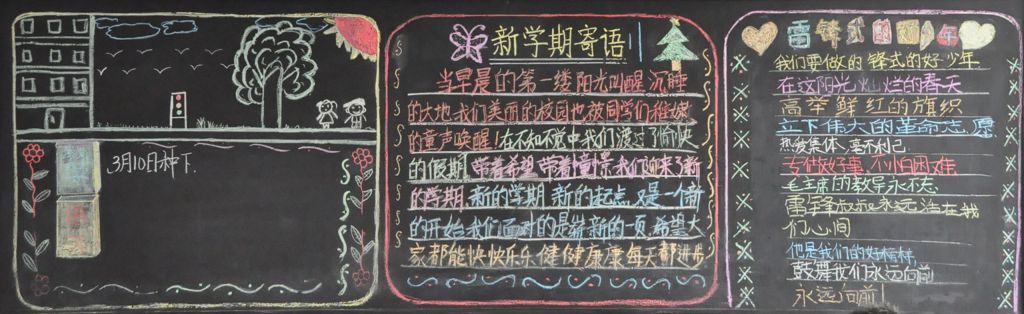 3月10日种下.
新学期寄语
当早晨的第一缕阳光叫醒沉睡
的大地,我们美丽的校园也被同学们稚嫩
的童声唤醒!在不知不觉中我们渡过了愉快
的假期.带着希望,带着憧憬,我们迎来了新
的学期.新的学期,新的起点,又是一个新
的开始,我们面对的是崭新的一页,希望大
家都能快快乐乐,健健康康,每天都进步
雷锋式 少年
我们要做的锋式的好少年
在这阳光灿烂的春天
高举鲜红的旗织
立下伟大的革命志愿
热爱集体,毫不利己
专做好事,不怕困难
毛主席的教导永不忘
雷锋叔叔永远活在我
们心间
他是我们的好榜样,
鼓舞我们永远向前
永远向前!